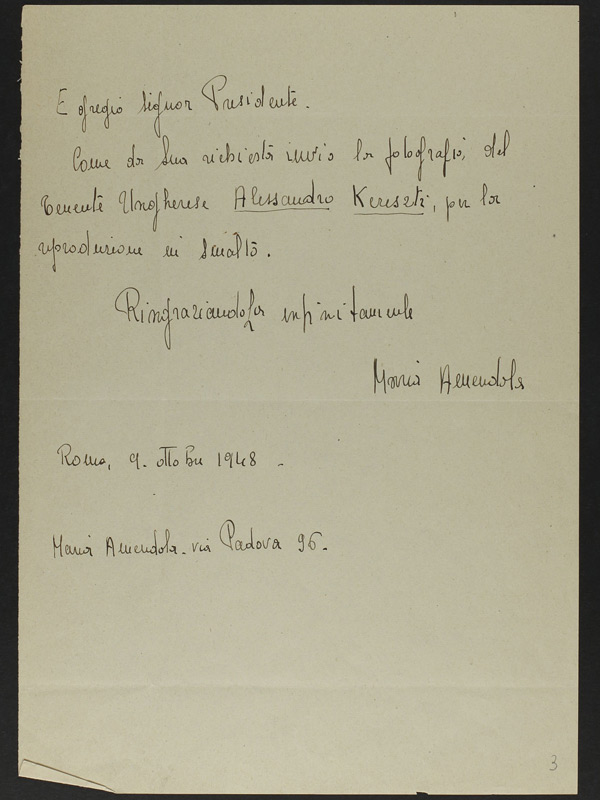 Egregio Signor Presidente.
Come da Sua richiesta invio la fotografia, del
Tenente Ungherese Alessandro Kereszti, per la
riproduzione in smalto.
Ringraziandola infinitamente
Maria Amendola
Roma, 9. ottobre 1948 -
Maria Amendola - via Padova 96 -
3